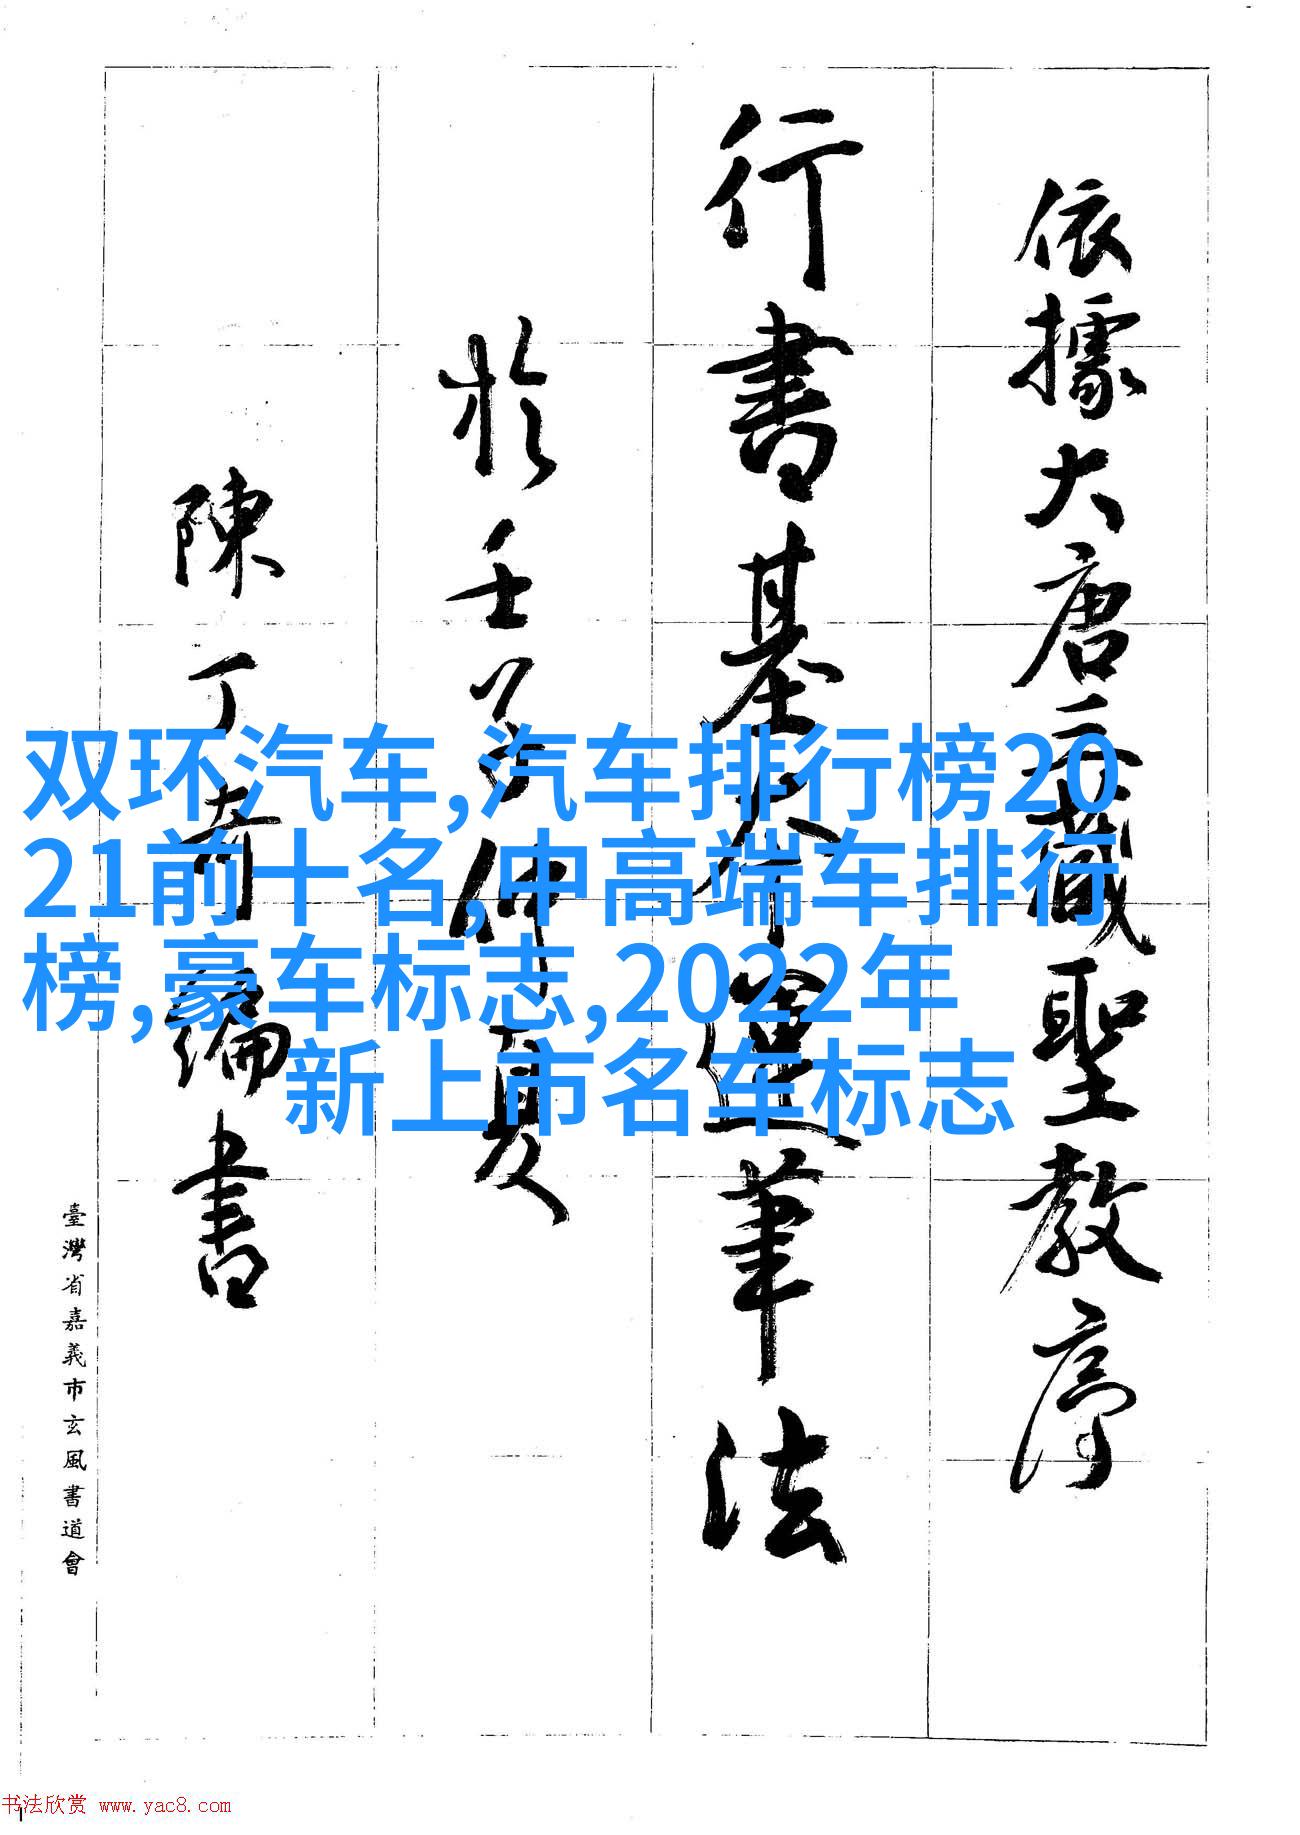 依據大唐三藏聖教序
行書基本運筆法
於壬子仲夏
陳丁奇編書
臺灣省嘉義市玄風書道會
双环汽车,汽车排行榜20
21前十名,中高端车排行
榜,豪车标志,2022年
新上市名车标志
书法欣赏 www.yac8.com